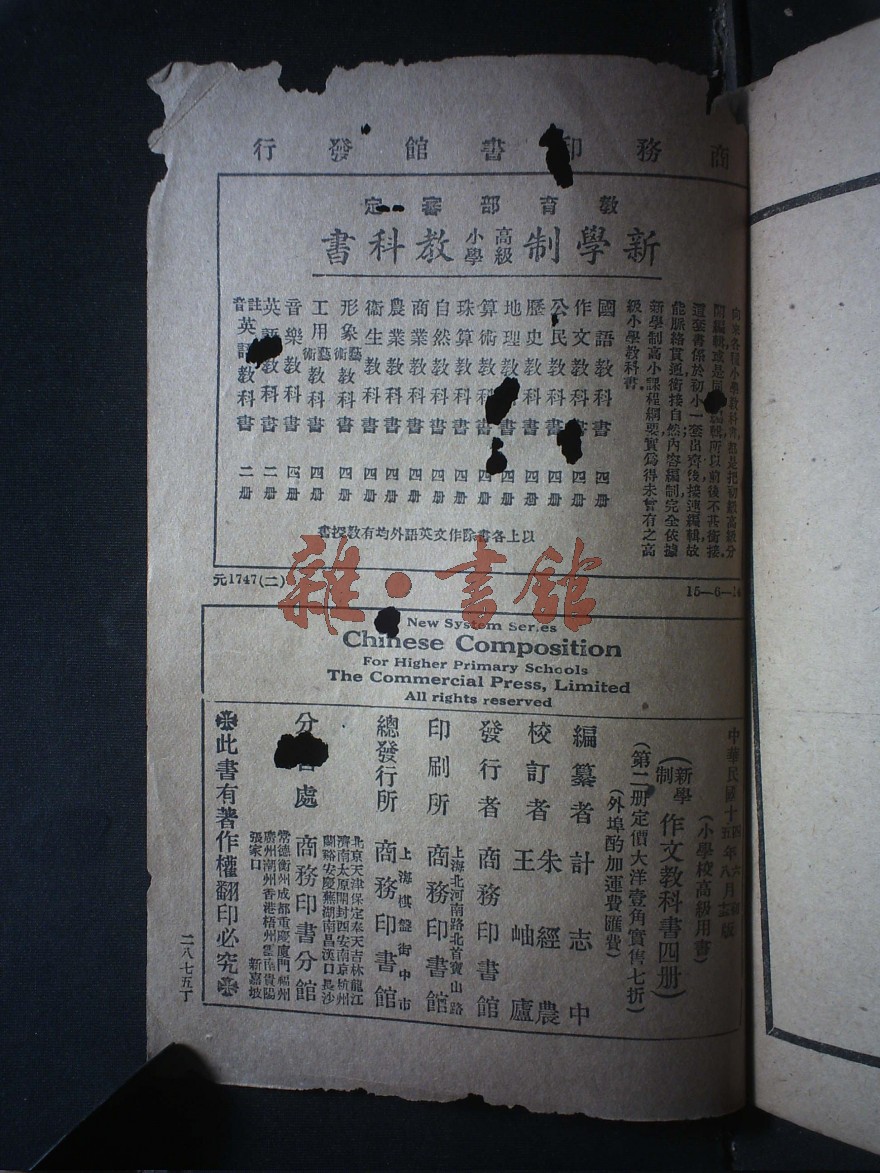 商務印書館發行
教育部審定
新學制高級小學教科書
向來各種小學教科書,都是把初級高級分
開編輯,或是同
編輯,所以前後不甚銜接.
這套書係於初小一套出齊後,接連編輯,故
能脈絡貫通,銜接自然;內容編制,完全依據
新學制高小課程綱要,實爲得未曾有之高
級小學教科書.
國語教科書 四册
作文教科書 四册
公民教科書 四册
歷史教科書 四册
地理教科書 四册
算術教科書 四册
珠算教科書 四册
自然教科書 四册
商業教科書 四册
農業教科書 四册
衞生教科書 四册
形象藝術教科書 四册
工用藝術教科書 四册
音樂教科書 四册
英語教科書 二册
註音英語教科書 二册
以上各書除作文英語外均有教授書
元1747(二)
雜·書館
New System Series
Chinese Composition
For Higher Primary Schools
The Commercial Press, Limited
All rights reserved
中華民國十四年六月初版
五年八月
(小學校高級用書)
(新學制作文教科書四册)
(第二册定價大洋壹角實售七折)
(外埠酌加運費匯費)
編纂者 計志中
校訂者 朱經農
王岫廬
發行者 商務印書館
印刷所 上海北河南路北首寶山路
商務印書館
總發行所 上海棋盤街中市
商務印書館
分售處
北京天津保定奉天吉林龍江
濟南太原開封西安南京杭州
蘭谿安慶蕪湖南昌漢口長沙
商務印書分館
常德衡州成都重慶廈門福州
廣州潮州香港梧州雲南貴陽
張家口 新嘉坡
此書有著作權翻印必究
二八七五丁